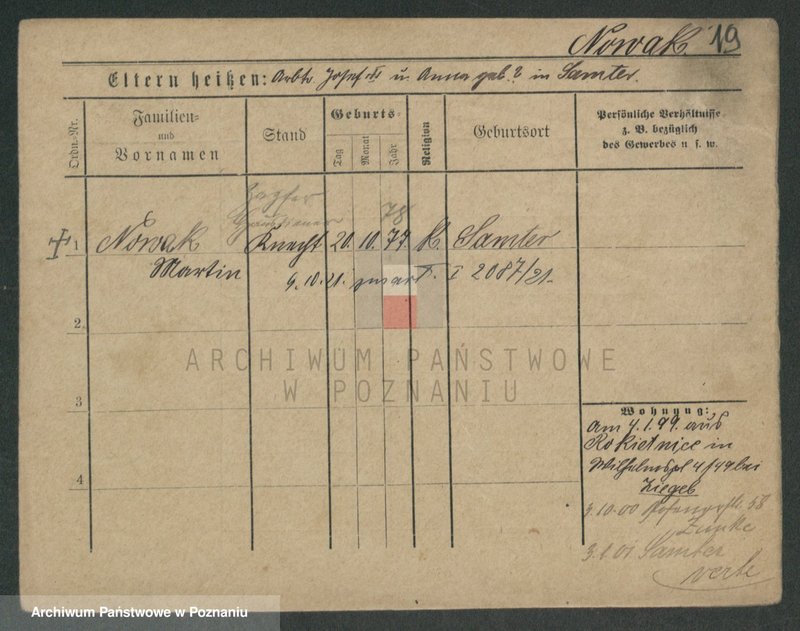 Nowak 19
Eltern heißen: Arbtr. Josef II u. Anna geb. ? in Samter.
Ordn.-Nr.
Familien-
und
Vornamen
Stand
Geburts-
Tag
Monat
Jahr
Religion
Geburtsort
Persönliche Verhältnisse
z. B. bezüglich
des Gewerbes u. s. w.
78
1 Nowak Knecht 20. 10. 77 k. Samter
Martin
9.10.21. zmarł T. I 2087/21.
2.
3
4
ARCHIWUM PAŃSTWOWE
W POZNANIU
Wohnung:
Am 4.1.99. aus
Rokietnice in
4/49 bei
Ziegel
3.10.00 58
3.1.01 Samter
Archiwum Państwowe w Poznaniu